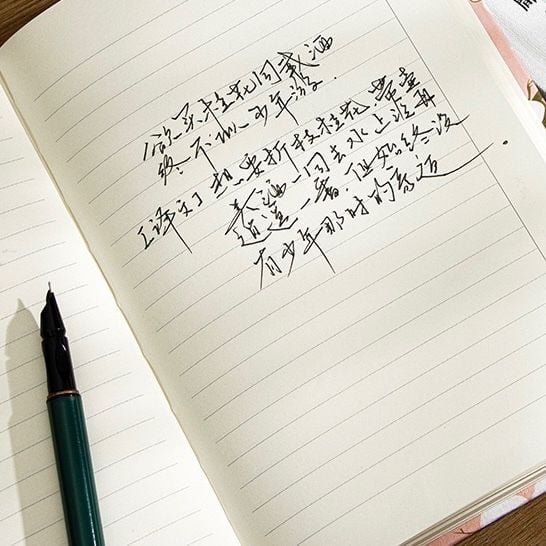 欲买桂花同载酒
终不似少年游.
[译文] 想要折枝桂花.带壶
美酒一同去水上泛舟
逍遥一番.但始终没
有少年那时的豪迈.